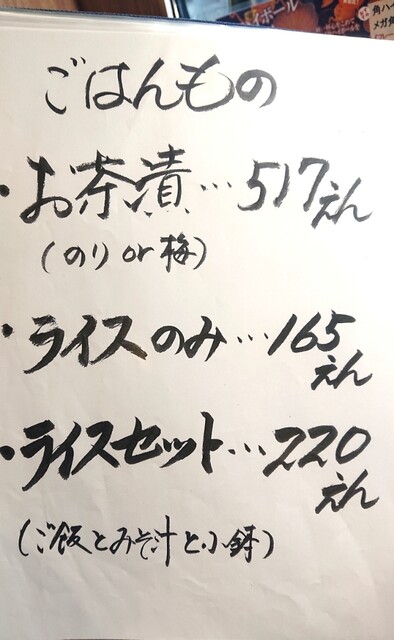 ごはんもの
・お茶漬…517えん
(のり or 梅)
・ライスのみ…165
えん
・ライスセット…220
えん
(ご飯とみそ汁と小鉢)
イボール
角ハイ
メガ角